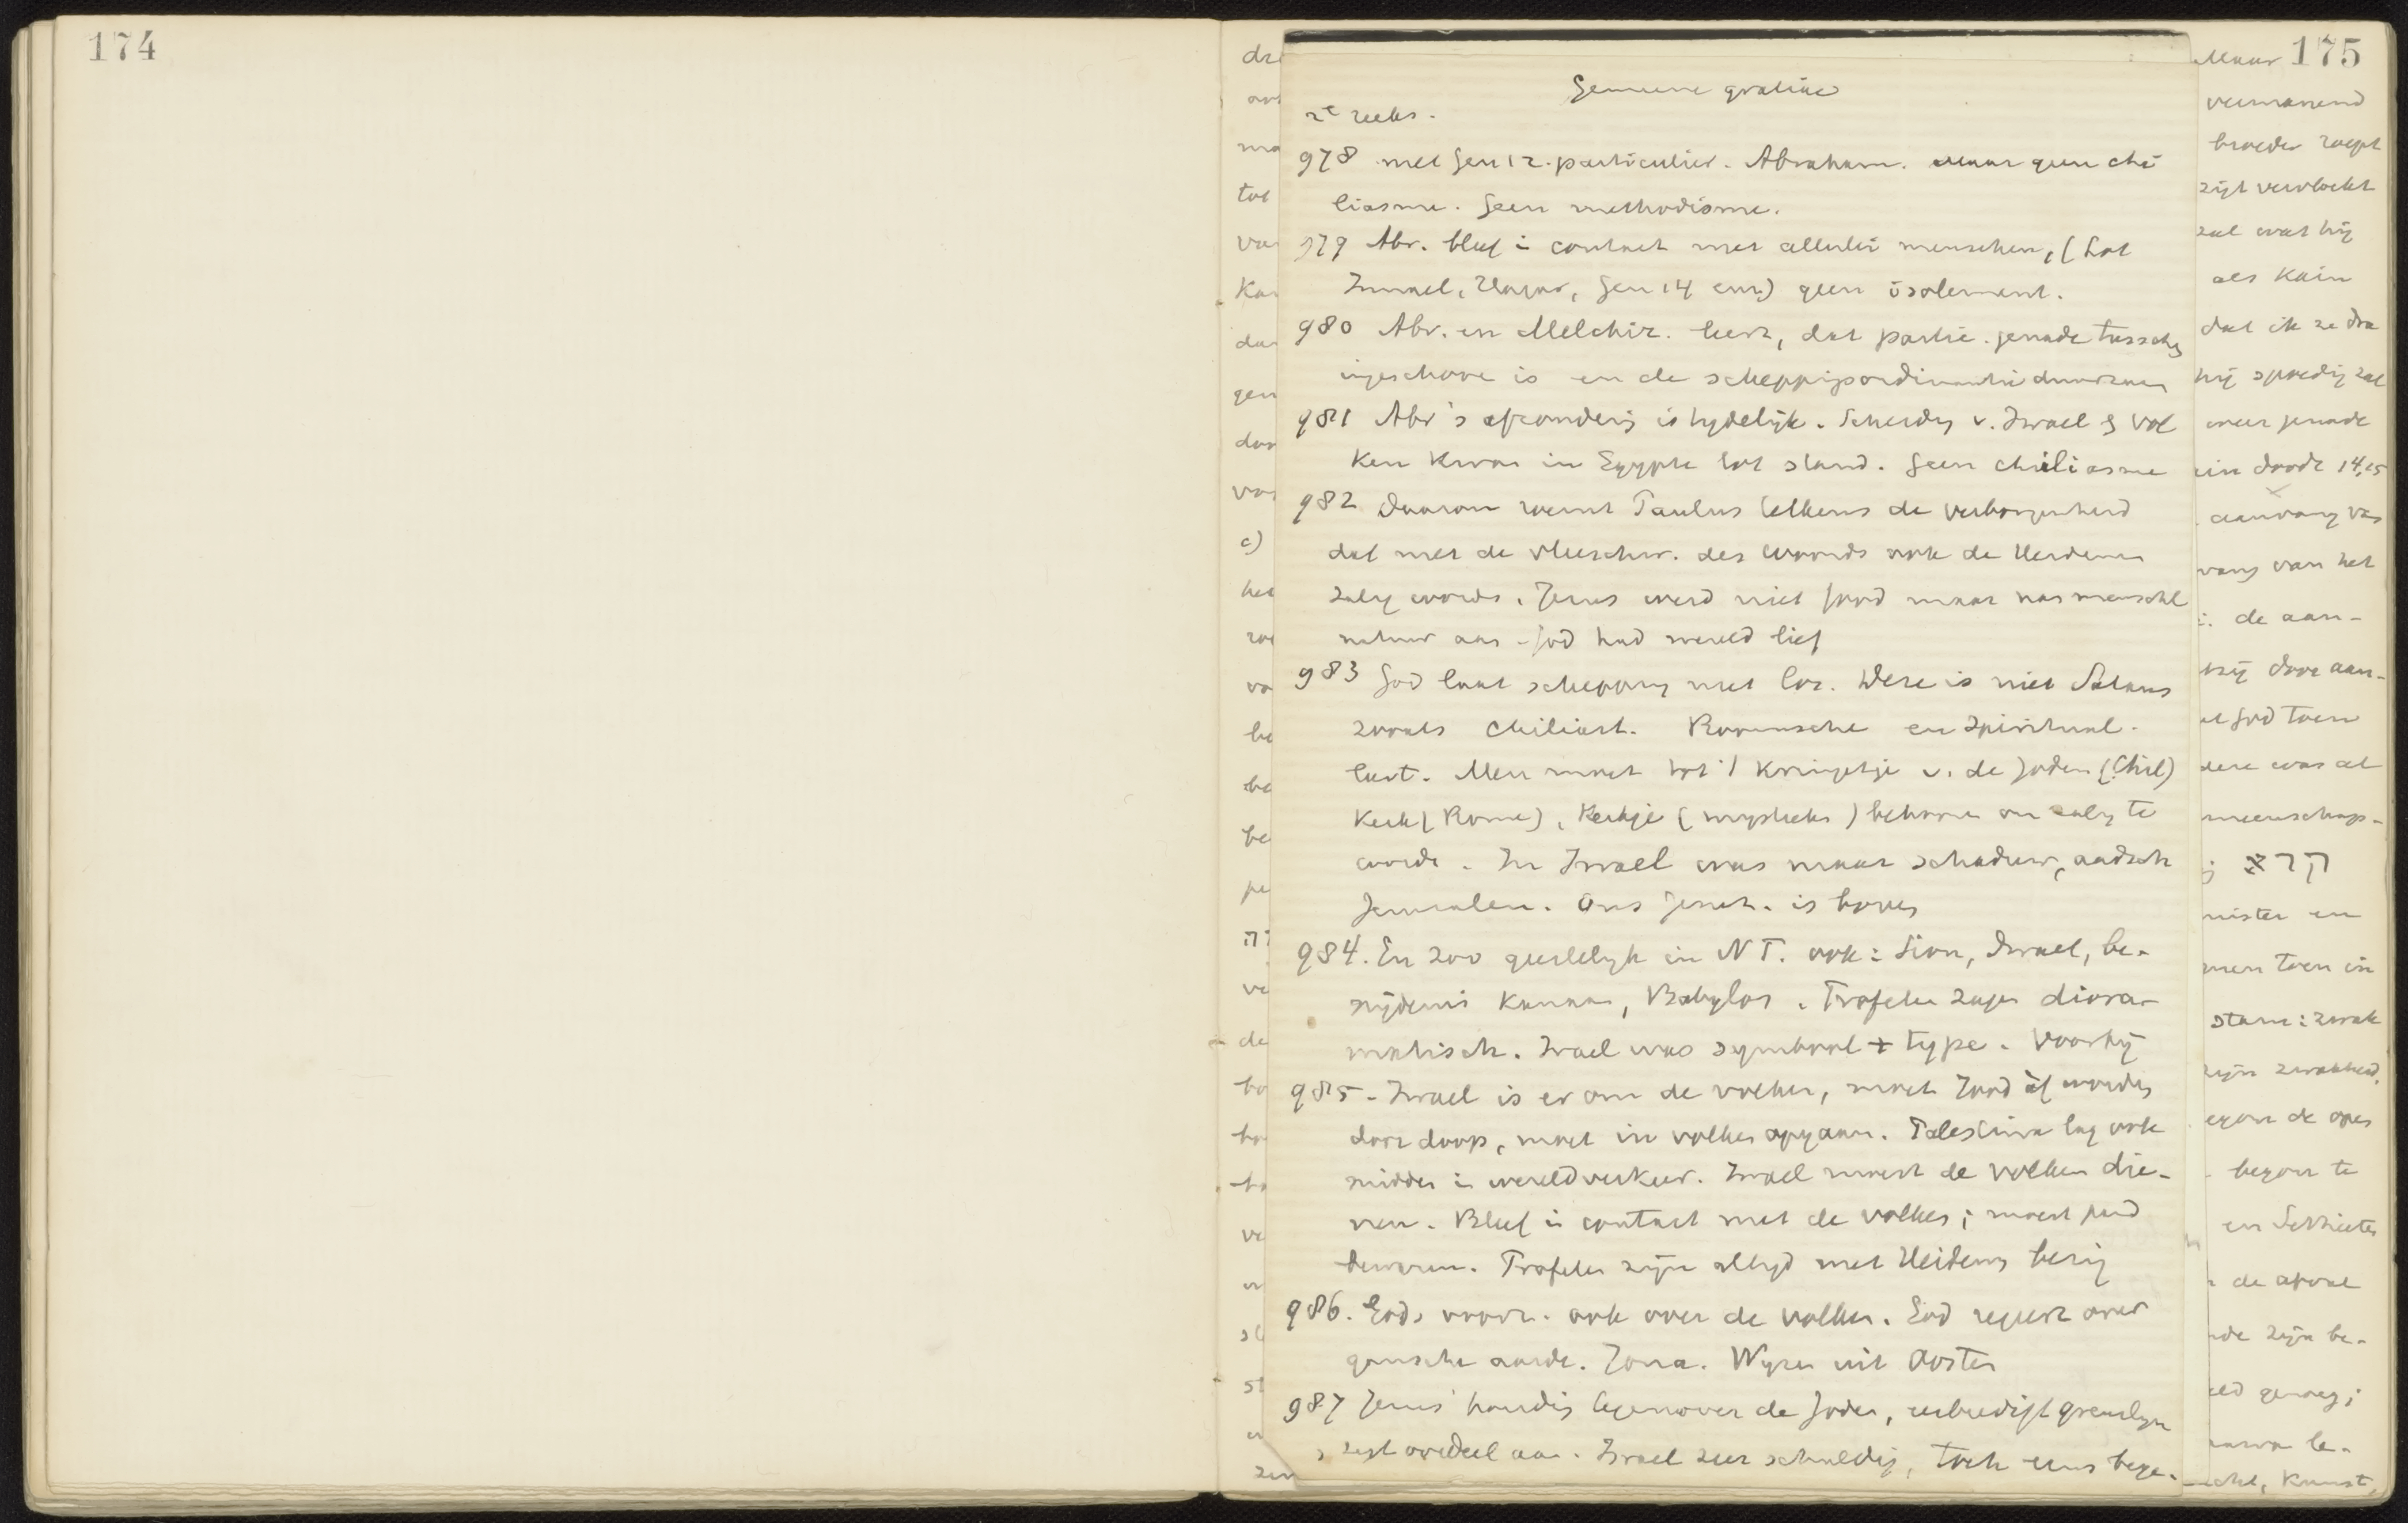 174
175
Gemeene gratie
2e reeks.
978 met Gen 12. particulier. Abraham. maar geen chi
liasme. Geen methodisme.
979 Abr. bleef in contact met allerlei menschen, (Lot
Ismael, Hagar, Gen 14 enz.) geen isolement.
980 Abr. en Melchiz. leert, dat partic. genade tusschen
ingeschove is en de scheppingsordinantie duurzaam
981 Abr's afzondering is tydelijk. Scheiding v. Israel & vol
ken kwam in Egypte tot stand. Geen chiliasme
982 Daarom roemt Paulus telkens de verborgenheid
dat met de vleeschw. des Woords ook de Heidenen
zalig worden. Jezus werd niet Jood maar nam menschl
natuur aan - God had wereld lief
983 God laat schepping niet los. Deze is niet Satans
zooals Chiliast. Roomsche en Spiritual.
leert. Men moet tot 't kringetje v. de Joden (Chil)
Kerk (Rome), Kerkje (mystieke) behooren om zalig te
worde. In Israel was maar schaduw, aardsch
Jeruzalem. Ons Jeruz. is boven
984. En zoo geestelijk in N T. ook: Sion, Israel, be-
snijdenis Kanaan, Babylon. Profeten zagen diora-
matisch. Israel was symbool + type. Voorbij
985 - Israel is er om de volken, moet Jood af worden
door doop, moet in volken opgaan. Palestina lag ook
midden in wereldverkeer. Israel moest de volken die-
nen. Bleef in contact met de volken; moest pand
bewaren. Profeten zijn altijd met Heidenen bezig
986. Gods voorz. ook over de volken. God regeert over
gansche aarde. Jona. Wyzen uit Oosten
987 Jezus' houding tegenover de Joden, eerbiedigt grenslijn
zegt oordeel aan. Israel zeer schuldig, toch eens bege-
Maar
vermanend
broeder roept
zijt vervloekt
zal wat hij
als Kain
dat ik ze dra
hij spoedig zal
meer genade
in doode 14,15
aanvang van
vang van het
de aan-
hij door aan-
God toen
dere was al
meenschaps-
nister en
men toen in
stam: zwak
zijn zwakheid.
de
begon te
en
de
zijn be-
genoeg;
Kunst,